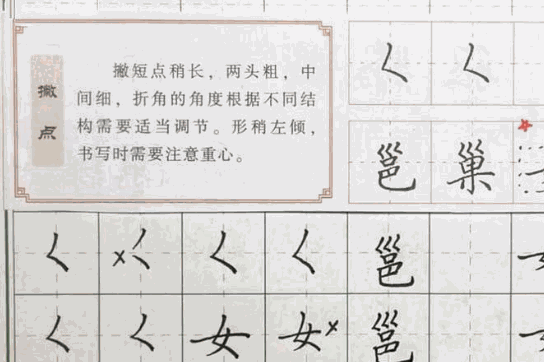 撇点
撇短点稍长，两头粗，中
间细，折角的角度根据不同结
构需要适当调节。形稍左倾，
书写时需要注意重心。
𡿨 𡿨
邕 巢
𡿨 𡿨 𡿨 𡿨 邕
𡿨 𡿨 女 女 邕